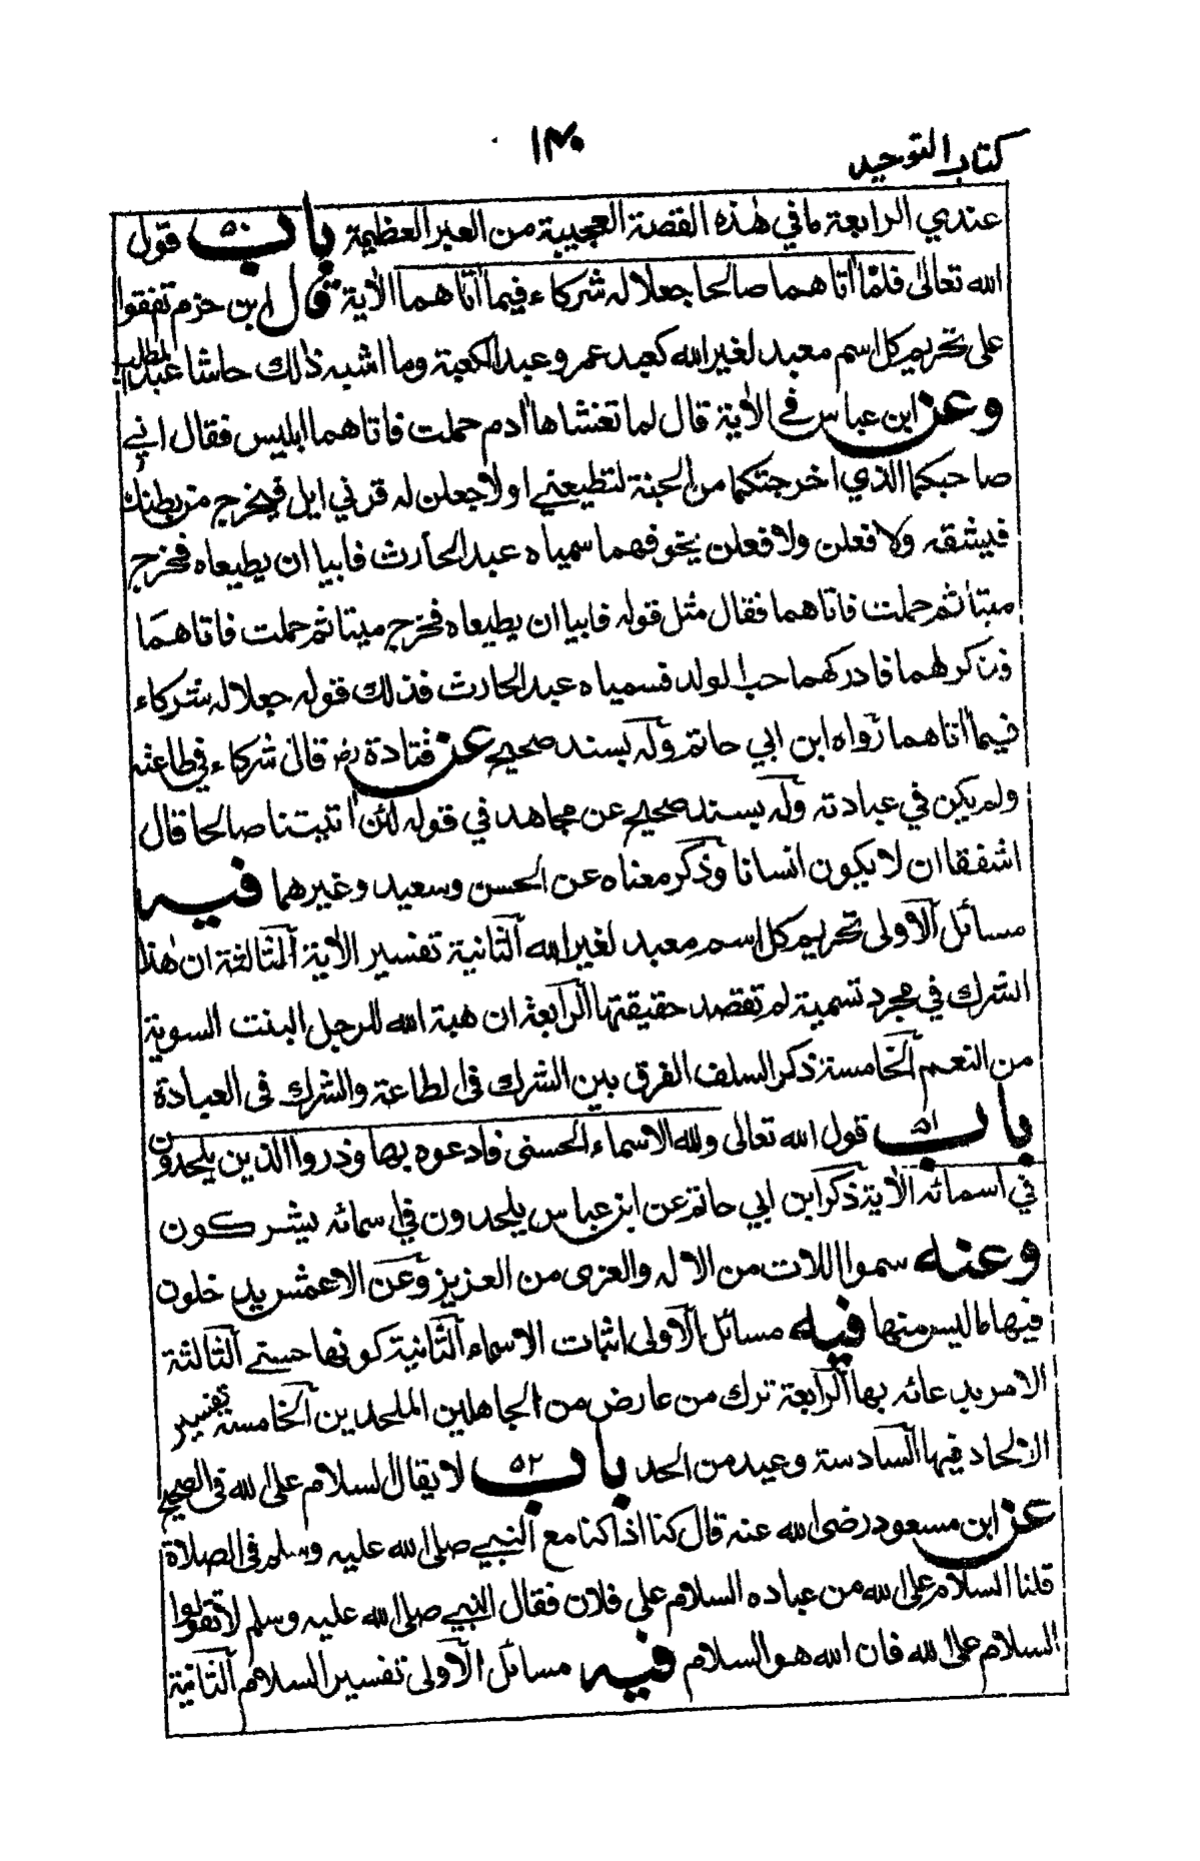 كتاب التوحيد
١٣٠
عندي الرابعة ما في هٰذه القصة العجيبة من العبر العظيمة باب ٥٠ قول
الله تعالىٰ فلمّا اٰتاهما صالحا جعلا له شركاء فيما اٰتاهما الاٰية قال ابن حزم تفقوا
على تحريم كل اسم معبد لغير الله كعبد عمر وعبد الكعبة وما اشبه ذالك حاشا عبد المطلب
وعن ابن عباس في الاٰية قال لما تغشاها اٰدم حملت فاتاهما ابليس فقال اني
صاحبكما الذي اخرجتكما من الجنة لتطيعني او لاجعلن له قرني ايل فيخرج من بطنك
فيشقه ولافعلن ولافعلن يخوفهما سمياه عبد الحارث فابيا ان يطيعاه فخرج
ميتا ثم حملت فاتاهما فقال مثل قوله فابيا ان يطيعاه فخرج ميتا ثم حملت فاتاهما
فذكر لهما فادركهما حب الولد فسمياه عبد الحارث فذلك قوله جعلا له شركاء
فيما اٰتاهما رواه ابن ابي حاتم وله بسند صحيح عن قتادة رض قال شركاء في طاعته
ولم يكن في عبادته وله بسند صحيح عن مجاهد في قوله لئن اٰتيتنا صالحا قال
اشفقا ان لا يكون انسانا وذكر معناه عن الحسن وسعيد وغيرهما فيه
مسائل الاولى تحريم كل اسم معبد لغير الله الثانية تفسير الاٰية الثالثة ان هٰذا
الشرك في مجرد تسمية لم تقصد حقيقتها الرابعة ان هبة الله للرجل البنت السوية
من النعم الخامسة ذكر السلف الفرق بين الشرك في الطاعة والشرك في العبادة
باب ٥١ قول الله تعالى ولله الاسماء الحسنى فادعوه بها وذروا الذين يلحدون
في اسمائه الاٰية ذكر ابن ابي حاتم عن ابن عباس يلحدون في اسمائه يشركون
وعنه سموا اللات من الاله والعزى من العزيز وعن الاعمش يدخلون
فيها ما ليس منها فيه مسائل الاولى اثبات الاسماء الثانية كونها حسنى الثالثة
الامر بدعائه بها الرابعة ترك من عارض من الجاهلين الملحدين الخامسة تفسير
الالحاد فيها السادسة وعيد من الحد باب ٥٢ لا يقال السلام على الله في الصحيح
عن ابن مسعود رضى الله عنه قال كنا اذا كنا مع النبي صلى الله عليه وسلم في الصلاة
قلنا السلام على الله من عباده السلام على فلان فقال النبي صلى الله عليه وسلم لا تقولوا
السلام على الله فان الله هو السلام فيه مسائل الاولى تفسير السلام الثانية